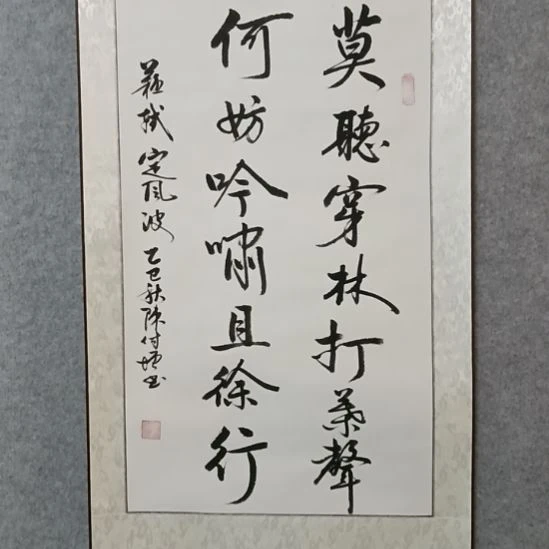 莫聽穿林打葉聲
何妨吟嘯且徐行
蘇軾 定風波 乙巳秋陳付增書